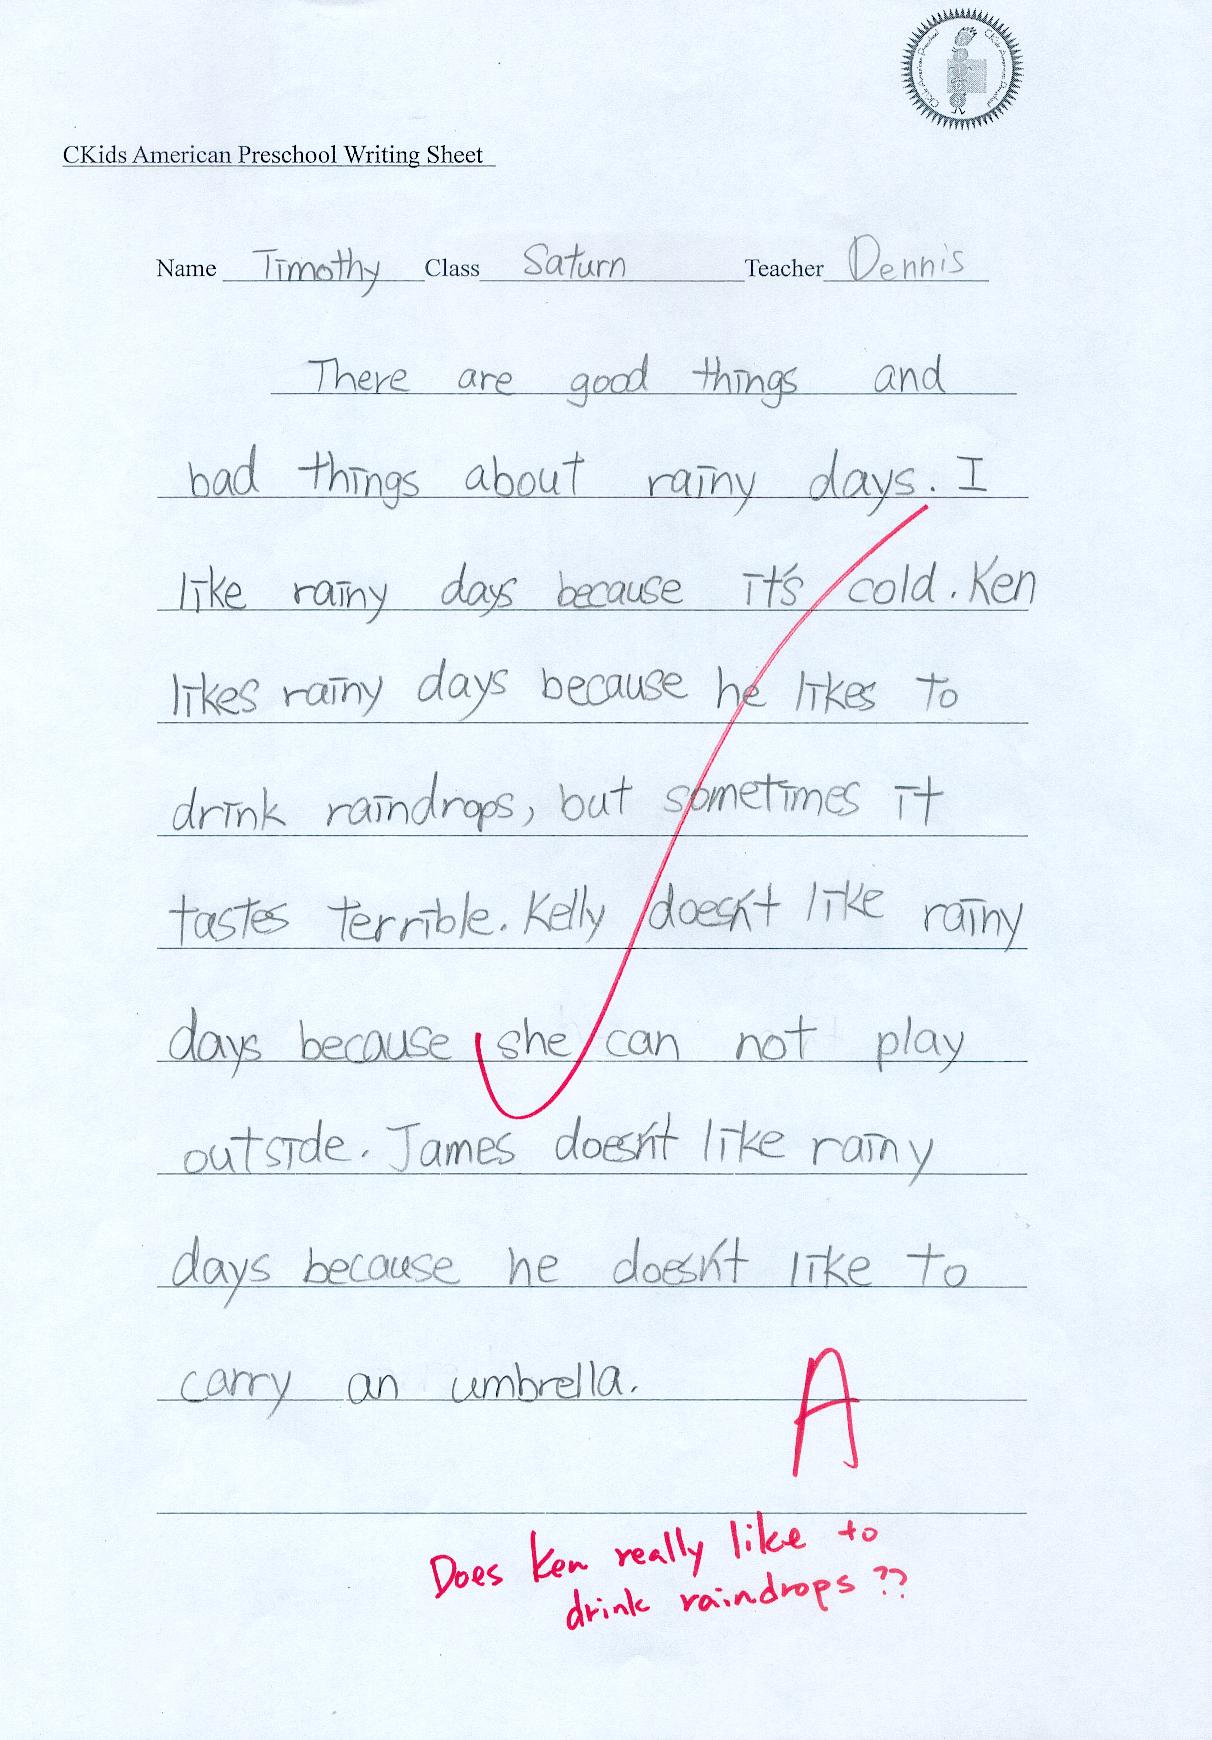 CKids American Preschool Writing Sheet
Name Timothy Class Saturn Teacher Dennis
There are good things and
bad things about rainy days. I
like rainy days because it's cold. Ken
likes rainy days because he likes to
drink raindrops, but sometimes it
tastes terrible. Kelly doesn't like rainy
days because she can not play
outside. James doesn't like rainy
days because he doesn't like to
carry an umbrella.
A
Does Ken really like to
drink raindrops ??